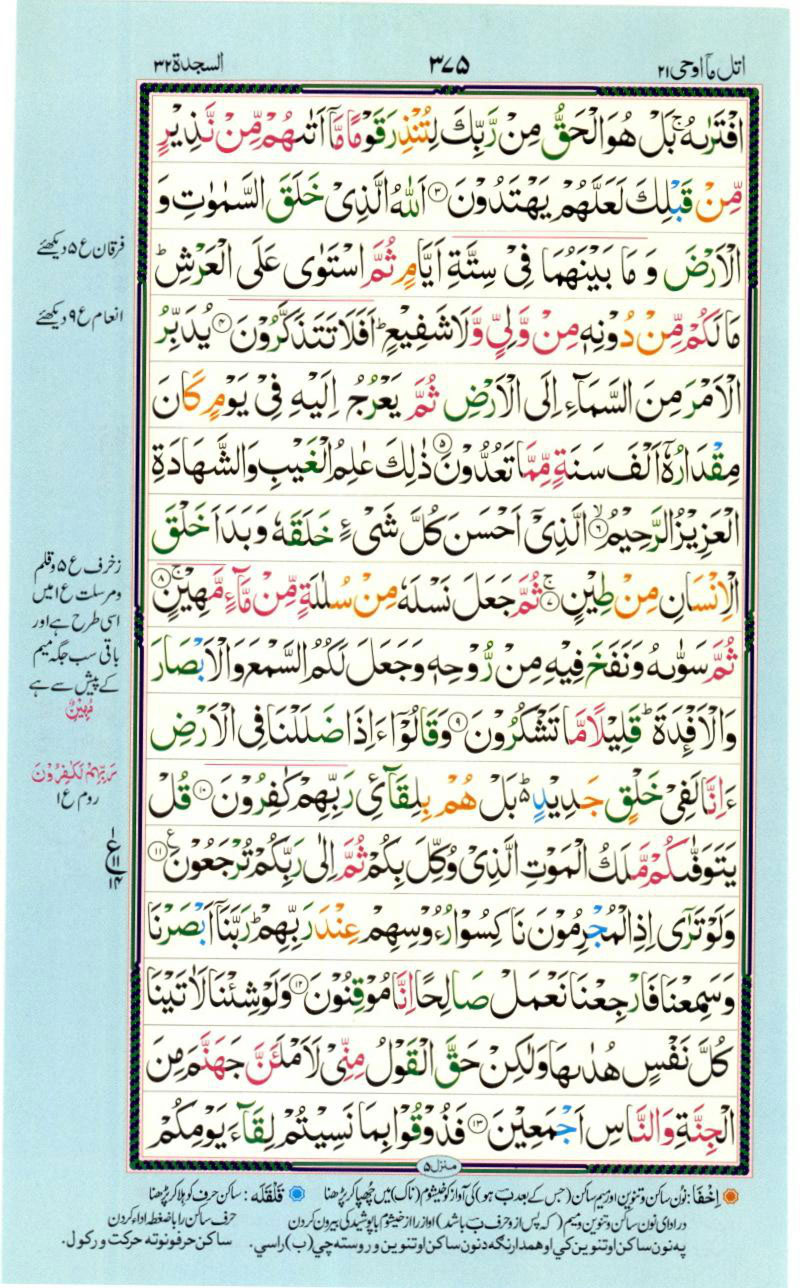 اتل ماۤ اوحی ۲۱
۳۷۵
السجدۃ ۳۲
افْتَرٰىهُ ۚ بَلْ هُوَ الْحَقُّ مِنْ رَّبِّكَ لِتُنْذِرَ قَوْمًا مَّاۤ اَتٰىهُمْ مِّنْ نَّذِيْرٍ
مِّنْ قَبْلِكَ لَعَلَّهُمْ يَهْتَدُوْنَ ۳ اَللّٰهُ الَّذِيْ خَلَقَ السَّمٰوٰتِ وَ
الْاَرْضَ وَ مَا بَيْنَهُمَا فِيْ سِتَّةِ اَيَّامٍ ثُمَّ اسْتَوٰى عَلَى الْعَرْشِ ؕ
مَا لَكُمْ مِّنْ دُوْنِهٖ مِنْ وَّلِيٍّ وَّلَا شَفِيْعٍ ؕ اَفَلَا تَتَذَكَّرُوْنَ ۴ يُدَبِّرُ
الْاَمْرَ مِنَ السَّمَآءِ اِلَى الْاَرْضِ ثُمَّ يَعْرُجُ اِلَيْهِ فِيْ يَوْمٍ كَانَ
مِقْدَارُهٗۤ اَلْفَ سَنَةٍ مِّمَّا تَعُدُّوْنَ ۵ ذٰلِكَ عٰلِمُ الْغَيْبِ وَالشَّهَادَةِ
الْعَزِيْزُ الرَّحِيْمُ ۙ ۶ الَّذِيْۤ اَحْسَنَ كُلَّ شَيْءٍ خَلَقَهٗ وَبَدَاَ خَلْقَ
الْاِنْسَانِ مِنْ طِيْنٍ ۚ ۷ ثُمَّ جَعَلَ نَسْلَهٗ مِنْ سُلٰلَةٍ مِّنْ مَّآءٍ مَّهِيْنٍ ۚ ۸
ثُمَّ سَوّٰىهُ وَنَفَخَ فِيْهِ مِنْ رُّوْحِهٖ وَجَعَلَ لَكُمُ السَّمْعَ وَالْاَبْصَارَ
وَالْاَفْئِدَةَ ؕ قَلِيْلًا مَّا تَشْكُرُوْنَ ۹ وَقَالُوْۤا ءَاِذَا ضَلَلْنَا فِي الْاَرْضِ
ءَاِنَّا لَفِيْ خَلْقٍ جَدِيْدٍ ۬ؕ بَلْ هُمْ بِلِقَآئِ رَبِّهِمْ كٰفِرُوْنَ ۱۰ قُلْ
يَتَوَفّٰىكُمْ مَّلَكُ الْمَوْتِ الَّذِيْ وُكِّلَ بِكُمْ ثُمَّ اِلٰى رَبِّكُمْ تُرْجَعُوْنَ ۱۱ ع
وَلَوْ تَرٰۤى اِذِ الْمُجْرِمُوْنَ نَاكِسُوْا رُءُوْسِهِمْ عِنْدَ رَبِّهِمْ ؕ رَبَّنَاۤ اَبْصَرْنَا
وَسَمِعْنَا فَارْجِعْنَا نَعْمَلْ صَالِحًا اِنَّا مُوْقِنُوْنَ ۱۲ وَلَوْ شِئْنَا لَاٰتَيْنَا
كُلَّ نَفْسٍ هُدٰىهَا وَلٰكِنْ حَقَّ الْقَوْلُ مِنِّيْ لَاَمْلَـَٔنَّ جَهَنَّمَ مِنَ
الْجِنَّةِ وَالنَّاسِ اَجْمَعِيْنَ ۱۳ فَذُوْقُوْا بِمَا نَسِيْتُمْ لِقَآءَ يَوْمِكُمْ
فرقان ع ۵ دیکھئے
انعام ع ۹ دیکھئے
زخرف ع ۵ و قلم
و مرسلت ع ۱ میں
اسی طرح ہے اور
باقی سب جگہ میم
کے پیش سے ہے
مُّهِيْنٌ
بَرَبِّهِمْ لَكٰفِرُوْنَ
روم ع ۱
۱
ع
۱۱
۱۴
منزل ۵
اِخفَا: نون ساکن و تنوین اور میم ساکن (جس کے بعد ب ہو) کی آواز کو خیشوم (ناک) میں چھپا کر پڑھنا قَلْقَلَه: ساکن حرف کو ہلا کر پڑھنا
در ادای نون ساکن و تنوین و میم (که پس از و حرف ب باشد) آواز را از خیشوم با پوشیدگی بیرون کردن حرف ساکن را با ضغطه اداء کردن
په نون ساکن او تنوین کي او همدارنگه د نون ساکن او تنوین و روسته چي (ب) راسي. ساکن حرفونو ته حرکت ورکول.